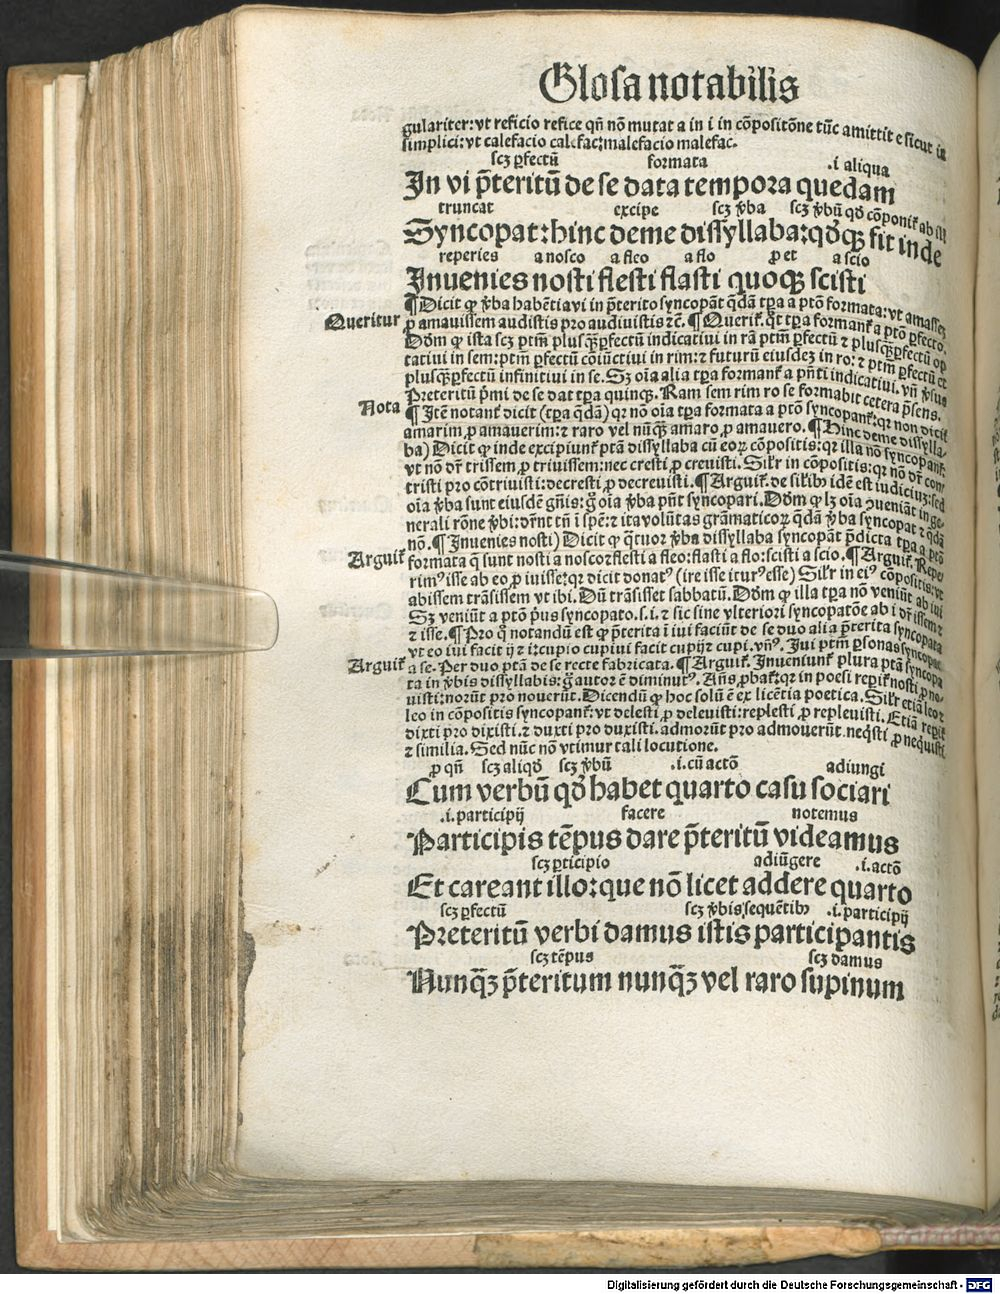 Glosa notabilis
gulariter: vt reficio refice qñ nõ mutat a in i in cõpositõne tũc amittit e sicut in
simplici: vt calefacio calefac: malefacio malefac.
scꝫ ꝑfectũ formata .i aliqua
In vi p̃teritũ de se data tempora quedam
truncat excipe scꝫ v̓ba scꝫ v̓bũ qđ cõponit᷑ ab ill
Syncopat: hinc deme dissyllaba: qđqꝫ fit inde
reperies a nosco a fleo a flo ꝓ et a scio
Inuenies nosti flesti flasti quoqꝫ scisti
¶ Dicit ꝙ v̓ba habẽtia vi in p̃terito syncopãt q̃dã tꝑa a ptõ formata: vt amasseꝫ
Queritur ꝓ amauissem audistis pro audiuistis ⁊c̃. ¶ Querit᷑. q̃t tꝑa formant᷑ a ptõ ꝑfecto.
Dõm ꝙ ista scꝫ ptm̃ plusqꝫꝑfectũ indicatiui in rã ptm̃ ꝑfectũ ⁊ plusqꝫꝑfectũ op
tatiui in sem: ptm̃ ꝑfectũ cõiũctiui in rim: ⁊ futurũ eiusdeꝫ in ro: ⁊ ptm̃ ꝑfectũ et
plusqꝫꝑfectũ infinitiui in se. Sꝫ oĩa alia tꝑa formant᷑ a pñti indicatiui. vñ v̓sus
Preteritũ p̃mi de se dat tꝑa quinqꝫ. Ram sem rim ro se formabit cetera p̃sens.
Nota ¶ Itẽ notant᷑ dicit (tꝑa q̃dã) qꝛ nõ oĩa tꝑa formata a ptõ syncopant᷑: qꝛ non dicit᷑
amarim, ꝓ amauerim: ⁊ raro vel nũqꝫ amaro, ꝓ amauero. ¶ Hinc deme dissylla-
ba) Dicit ꝙ inde excipiunt᷑ ptã dissyllaba cũ eoꝝ cõpositis: qꝛ illa nõ syncopant᷑:
vt nõ dr̃ trissem, ꝓ triuissem: nec cresti ꝓ creuisti. Silr̃ in cõpositis: qꝛ nõ dr̃ con
tristi pro cõtriuisti: decresti ꝓ decreuisti. ¶ Arguit᷑. de silibꝰ idẽ est iudiciuꝫ: sed
oĩa v̓ba sunt eiusdẽ gñis: g̊ oĩa v̓ba pñt syncopari. Dõm ꝙ lꝫ oĩa ꝯueniãt in ge-
nerali rõne v̓bi: dr̃nt tñ ĩ spẽ: ⁊ ita volũtas grãmaticoꝝ q̃dã v̓ba syncopat ⁊ q̃dã
nõ. ¶ Inuenies nosti) Dicit ꝙ q̃tuor v̓ba dissyllaba syncopãt p̃dicta tꝑa a ptõ
Arguit᷑ formata q̃ sunt nosti a nosco: flesti a fleo: flasti a flo: scisti a scio. ¶ Arguit᷑. Repe
rimꝰ isse ab eo, ꝓ iuisse: qꝛ dicit donatꝰ (ire isse iturꝰ esse) Silr̃ in eiꝰ cõpositis: vt
abissem trãsissem vt ibi. Dũ trãsisset sabbatũ. Dõm ꝙ illa tꝑa nõ veniũt ab iui
Sꝫ veniũt a ptõ p̃us syncopato. s. i. ⁊ sic sine vlteriori syncopatõe ab i dr̃ issem ⁊
⁊ isse. ¶ Pro q̊ notandũ est ꝙ p̃terita ĩ iui faciũt de se duo alia p̃terita syncopata
vt eo iui facit ij ⁊ i: cupio cupiui facit cupij ⁊ cupi. vñꝰ. Iui ptm̃ ꝑsonas syncopat
Arguit᷑ a se. Per duo ptã de se recte fabricata. ¶ Arguit᷑. Inueniunt᷑ plura ptã syncopa
ta in v̓bis dissyllabis: g̊ autor ẽ diminutꝰ. Añs ꝓbat᷑: qꝛ in poesi reꝑit᷑ nosti ꝓ no-
uisti: norũt pro nouerũt. Dicendũ ꝙ hoc solũ ẽ ex licẽtia poetica. Silr̃ etiã leo ⁊
leo in cõpositis syncopant᷑: vt delesti ꝓ deleuisti: replesti ꝓ repleuisti. Etiã reꝑit᷑
dixti pro dixisti. ⁊ duxti pro duxisti. admorũt pro admouerũt. neqsti ꝓ nequisti
⁊ similia. Sed nũc nõ vtimur tali locutione.
ꝓ qñ scꝫ aliqđ scꝫ v̓bũ .i. cũ actõ adiungi
Cum verbũ qđ habet quarto casu sociari
.i. participij facere notemus
Participis tẽpus dare p̃teritũ videamus
scꝫ ꝑticipio adiũgere .i. actõ
Et careant illo: que nõ licet addere quarto
scꝫ ꝑfectũ scꝫ v̓bis sequẽtibꝰ .i. participij
Preteritũ verbi damus istis participantis
scꝫ tẽpus scꝫ damus
Nunqꝫ p̃teritum nunqꝫ vel raro supinum
Digitalisierung gefördert durch die Deutsche Forschungsgemeinschaft - DFG